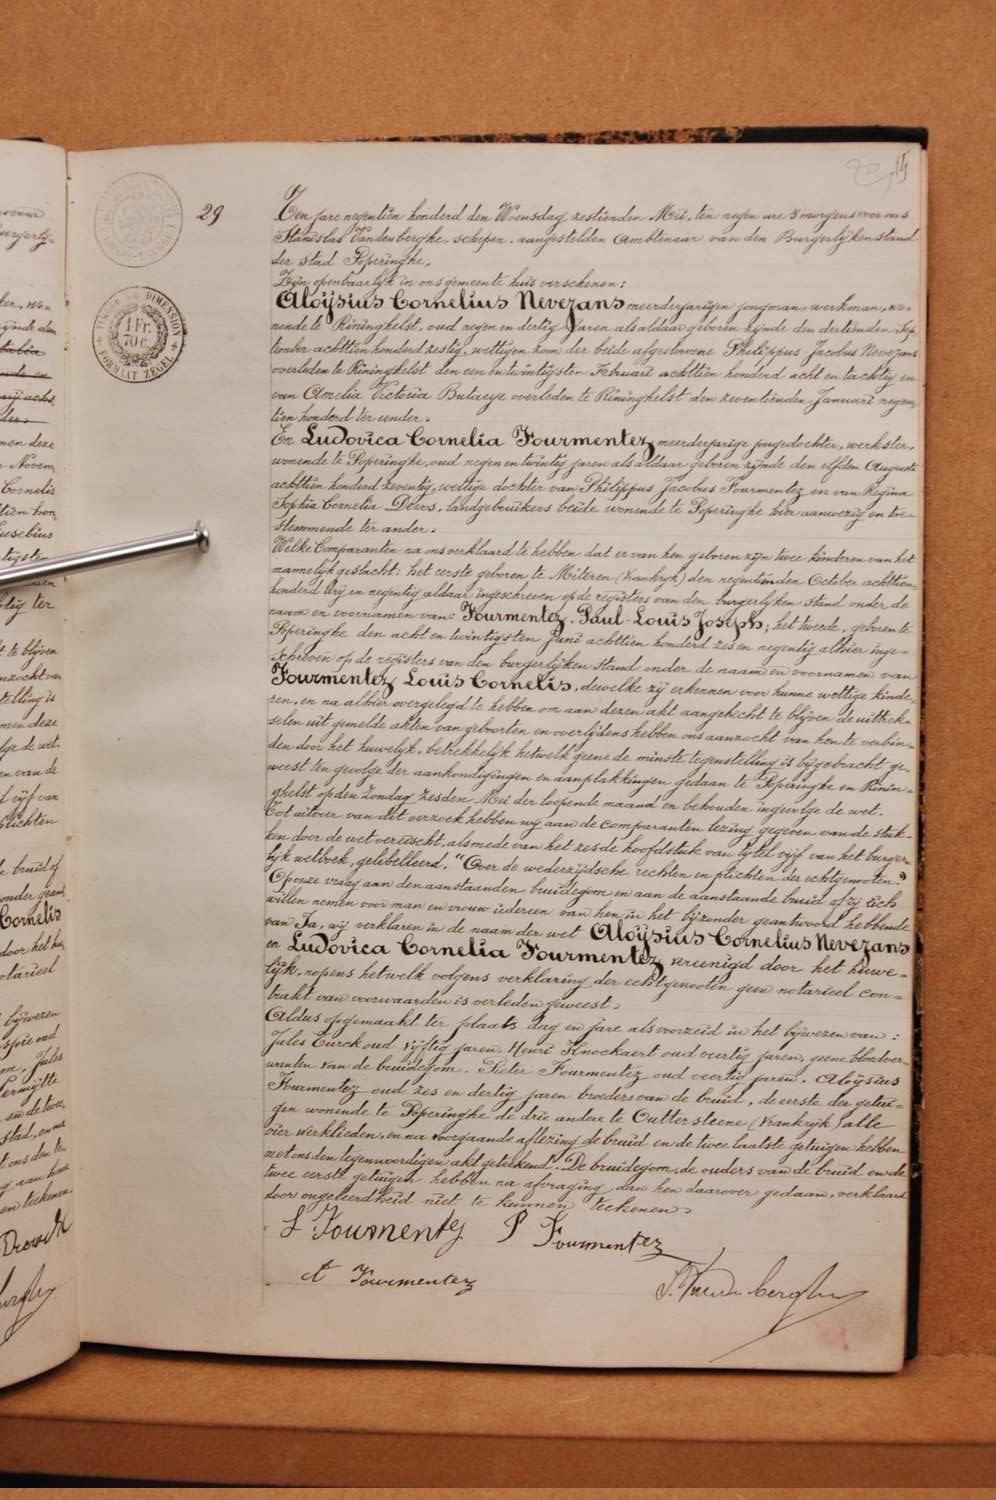 15
29
Ten jare negentien honderd den Woensdag zestienden Mei, ten negen ure 's morgens voor ons
Stanislas Vandenberghe, schepen, aangestelden Ambtenaar van den Burgerlijken stand
der stad Poperinghe,
Zijn openbaarlijk in ons gemeente huis verschenen:
Aloÿsius Cornelius Nevezans meerderjarigen jongman, werkman, wo-
nende te Rininghelst, oud negen en dertig jaren als aldaar geboren zijnde den dertienden Sep
tember achttien honderd zestig, wettigen zoon der beide afgestorvene Philippus Jacobus Nevezans
overleden te Rininghelst den een en twintigsten Februari achttien honderd acht en tachtig en
van Amelia Victoria Butaeye overleden te Rininghelst den zeventienden Januari negen,
tien honderd ter eender.
En Ludovica Cornelia Fourmentez meerderjarige jongedochter, werkster,
wonende te Poperinghe, oud negen en twintig jaren als aldaar geboren zijnde den elfden Augusti
achttien honderd zeventig, wettige dochter van Philippus Jacobus Fourmentez en van Regina
Sophia Cornelia Devos, landgebruikers beide wonende te Poperinghe hier aanwezig en toe-
stemmende ter ander.
Welke Comparanten na ons verklaard te hebben dat er van hen geboren zijn twee kinderen van het
mannelijk geslacht: het eerste geboren te Meteren (Vrankrijk) den negentienden October achttien-
honderd drij en negentig aldaar ingeschreven op de registers van den burgerlijken stand onder de
naam en voornamen van: Fourmentez, Paul-Louis Joseph; het tweede, geboren te
Poperinghe den acht en twintigsten Juni achttien honderd zes en negentig alhier inge-
schreven op de registers van den burgerlijken stand onder de naam en voornamen van
Fourmentez Louis Cornelis, dewelke zij erkennen voor hunne wettige kinde-
ren, en na alhier overgelegd te hebben om aan dezen akt aangehecht te blijven de uittrek-
selen uit gemelde akten van geboorten en overlijdens hebben ons aanzocht van hen te verbin-
den door het huwelijk, betrekkelijk hetwelk geene de minste tegenstelling is bijgebracht ge-
weest ten gevolge der aankondigingen en aanplakkingen gedaan te Poperinghe en Rinin-
ghelst op den Zondag zesden Mei der loopende maand en behouden ingevolge de wet.
Tot uitvoer van dit verzoek hebben wij aan de comparanten lezing gegeven van de stuk-
ken door de wet vereischt, alsmede van het zesde hoofdstuk van tijtel vijf van het burger-
lijk wetboek, gelibelleerd, "Over de wederzijdsche rechten en plichten der echtgenooten."
Op onze vraag aan den aanstaanden bruidegom en aan de aanstaande bruid of zij zich
willen nemen voor man en vrouw iedereen van hen in het bijzonder geantwoord hebbende
van Ja, wij verklaren in de naam der wet Aloÿsius Cornelius Nevezans
en Ludovica Cornelia Fourmentez vereenigd door het huwe-
lijk, nopens hetwelk volgens verklaring der echtgenooten geen notarieel con-
trakt van voorwaarden is verleden geweest.
Aldus opgemaakt ter plaats dag en jare als voorzeid in het bijwezen van:
Jules Turck oud vijftig jaren, Henri Knockaert oud veertig jaren, geene bloedver-
wanten van de bruidegom. Pieter Fourmentez oud veertig jaren, Aloÿsius
Fourmentez oud zes en dertig jaren broeders van de bruid, de eerste der getui-
gen wonende te Poperinghe de drie andere te Outtersteene (Vrankrijk) alle
vier werklieden, en na voorgaande aflezing de bruid en de twee laatste getuigen hebben
met ons den tegenwoordigen akt geteekend. De bruidegom, de ouders van de bruid en de
twee eerste getuigen hebben na afvraging, aan hen daarover gedaan, verklaard
door ongeleerdheid niet te kunnen teekenen.
L Fourmentez P Fourmentez
A Fourmentez S. Vandenberghe
TIMBRE DE DIMENSION
1 Fr.
70 c.
FORMAAT ZEGEL